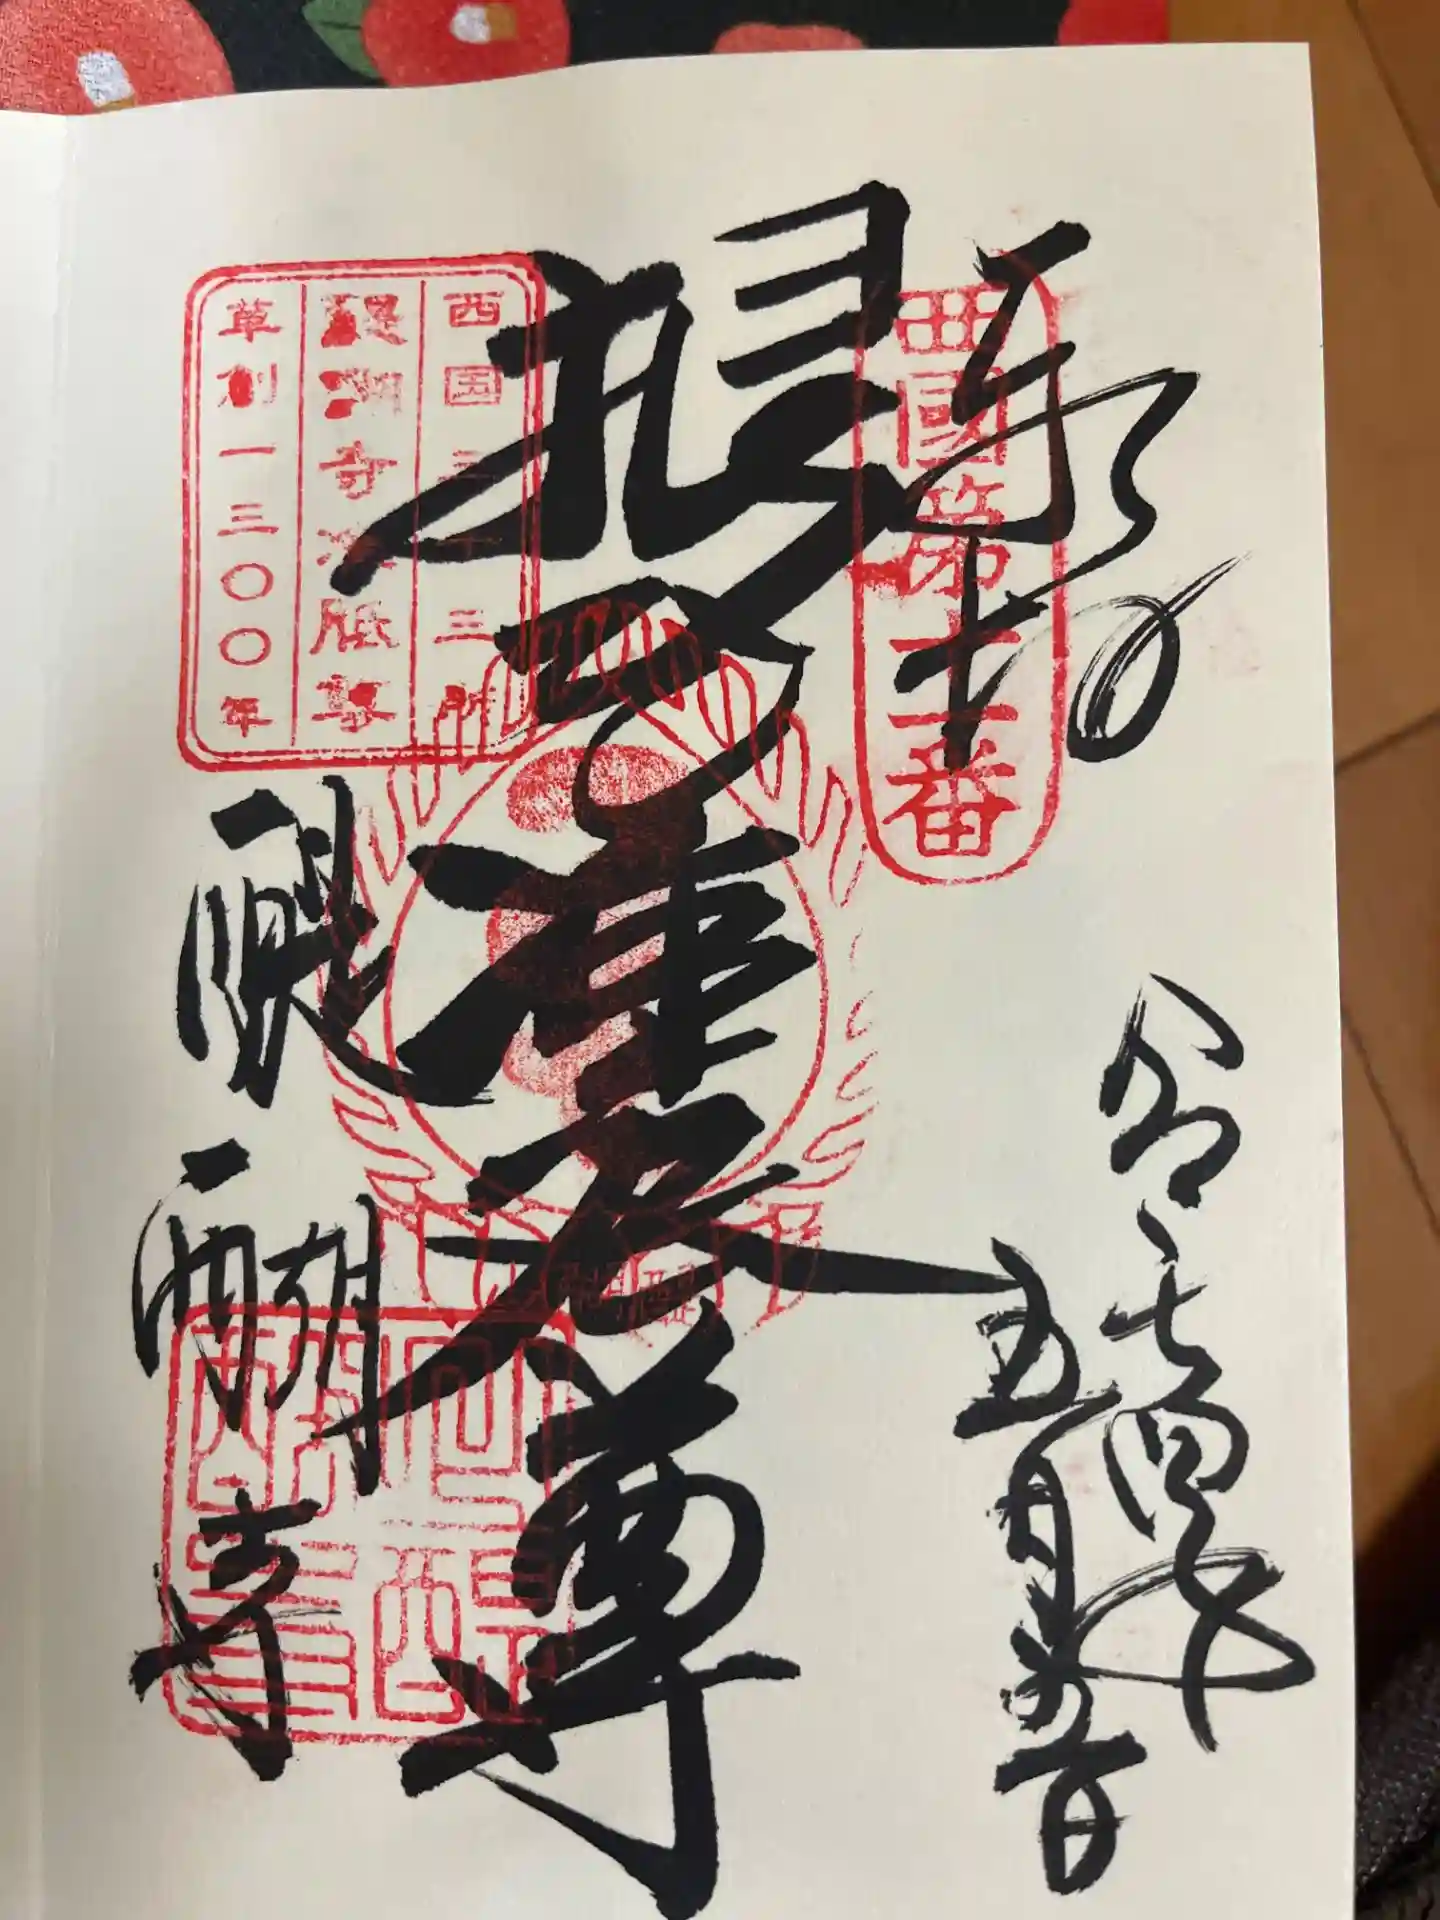 奉拝
西國第十一番
令和四年
五月
准胝尊
西国三十三所
醍醐寺准胝尊
草創一三〇〇年
醍醐寺